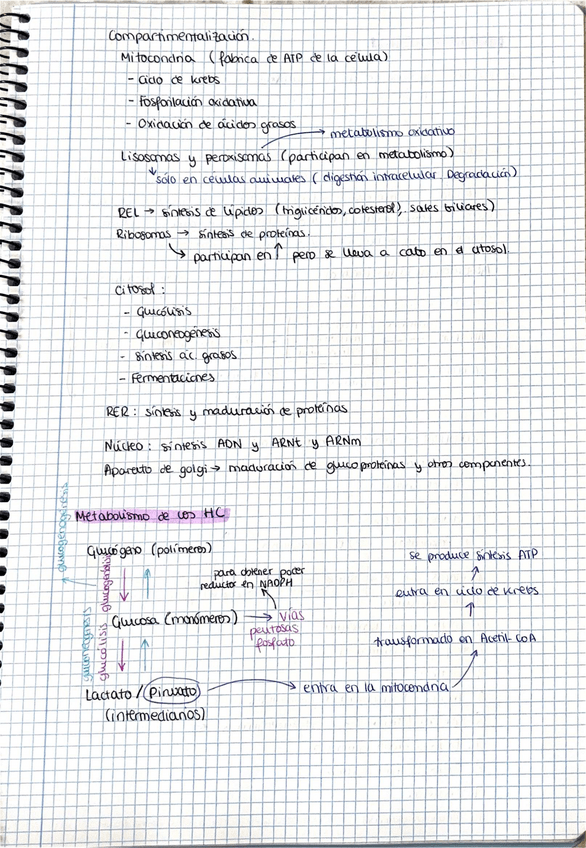 Compartimentalización.
Mitocondria (fabrica de ATP de la célula)
- Ciclo de Krebs
- Fosforilación oxidativa
- Oxidación de ácidos grasos
→ metabolismo oxidativo
Lisosomas y peroxisomas (participan en metabolismo)
↳ sólo en células animales (digestión intracelular. Degradación)
REL → síntesis de lípidos (triglicéridos, colesterol), sales biliares)
Ribosomas → síntesis de proteínas.
↳ participan en ↑ pero se lleva a cabo en el citosol.
Citosol:
- Glucólisis
- Gluconeogénesis
- Síntesis ac. grasos
- Fermentaciones
RER: síntesis y maduración de proteínas
Núcleo: síntesis ADN y ARNt y ARNm
Aparato de golgi → maduración de glucoproteínas y otros componentes.
Metabolismo de los HC
Glucógeno (polímeros)
↓ ↑
Glucosa (monómeros) → vías
pentosas
fosfato
para obtener poder
reductor en NADPH
gluconeogénesis
glucólisis
↓ ↑
Lactato / Piruvato → entra en la mitocondria
(intermedianos)
transformado en Acetil-CoA
entra en ciclo de Krebs
se produce síntesis ATP